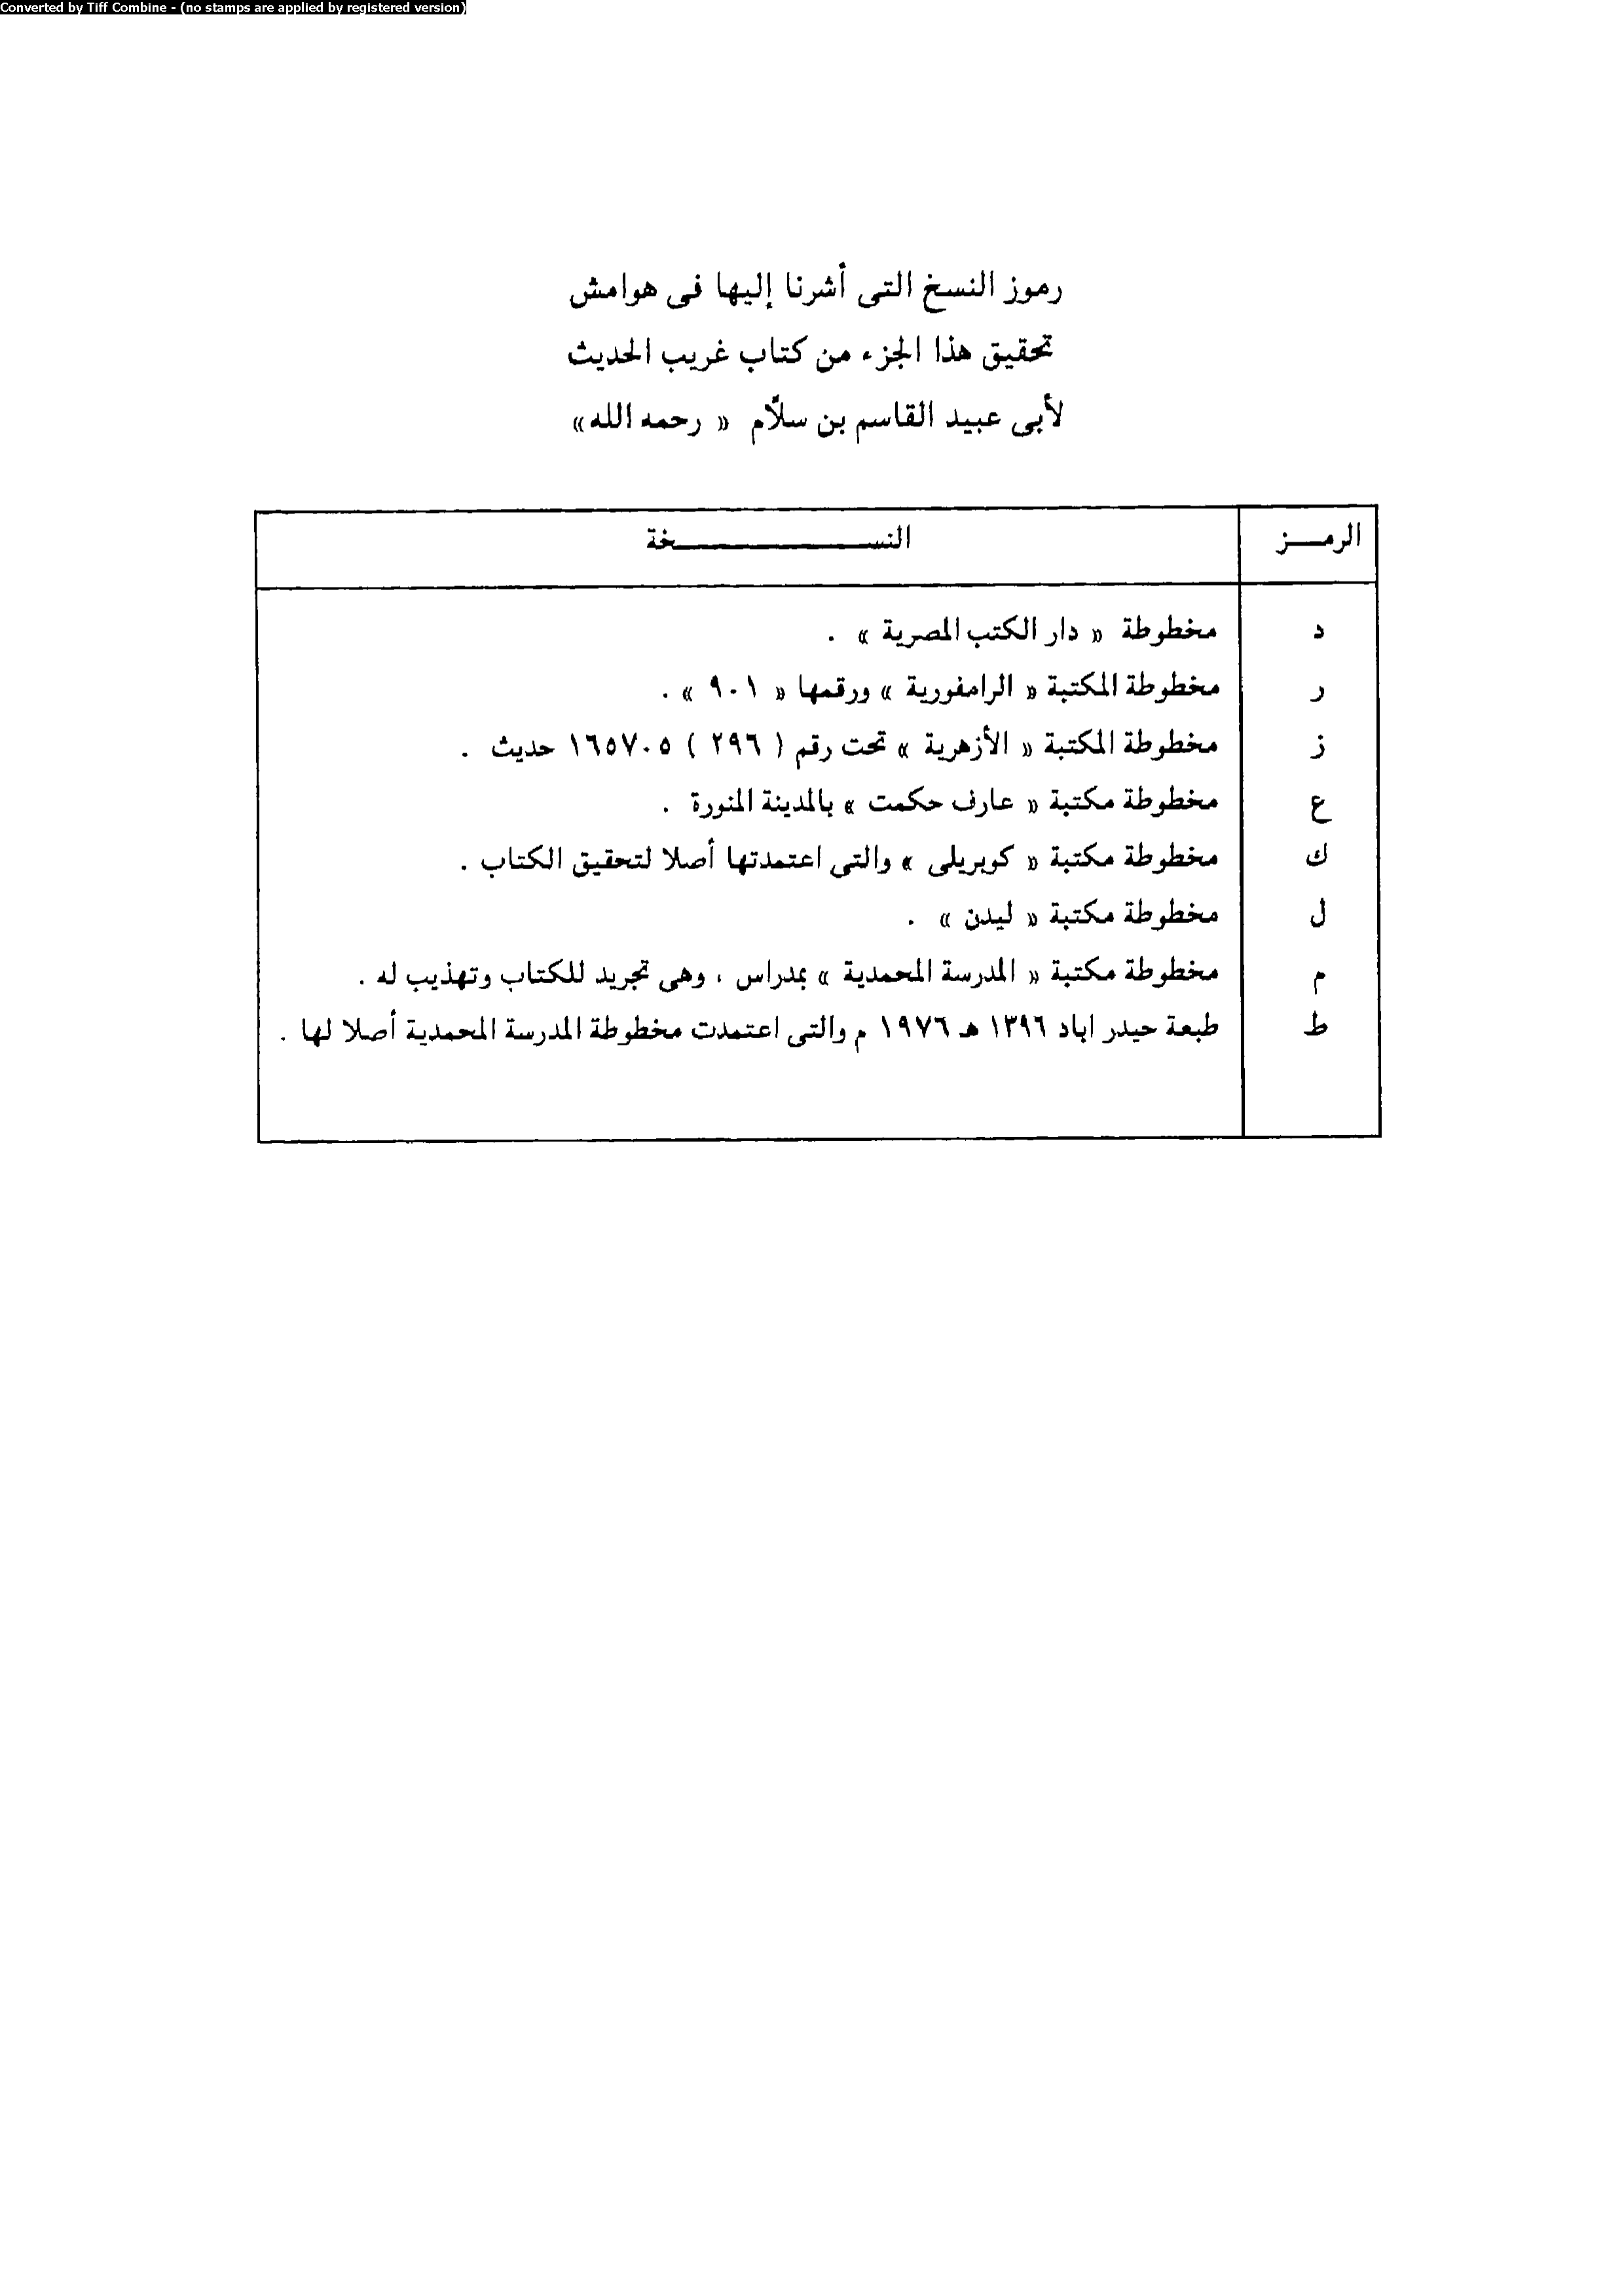 Converted by Tiff Combine - (no stamps are applied by registered version)
رموز النسخ التى أشرنا إليها فى هوامش
تحقيق هذا الجزء من كتاب غريب الحديث
لأبى عبيد القاسم بن سلاَّم « رحمه الله»
الرمــز النســــــــــــخة
د مخطوطة « دار الكتب المصرية » .
ر مخطوطة المكتبة « الرامفورية » ورقمها « ٩٠١ » .
ز مخطوطة المكتبة « الأزهرية » تحت رقم ( ٢٩٦ ) ١٦٥٧٠٥ حديث .
ع مخطوطة مكتبة « عارف حكمت » بالمدينة المنورة .
ك مخطوطة مكتبة « كوبريلى » والتى اعتمدتها أصلا لتحقيق الكتاب .
ل مخطوطة مكتبة « ليدن » .
م مخطوطة مكتبة « المدرسة المحمدية » بمدراس ، وهى تجريد للكتاب وتهذيب له .
ط طبعة حيدر اباد ١٣٩٦ هـ ١٩٧٦ م والتى اعتمدت مخطوطة المدرسة المحمدية أصلا لها .